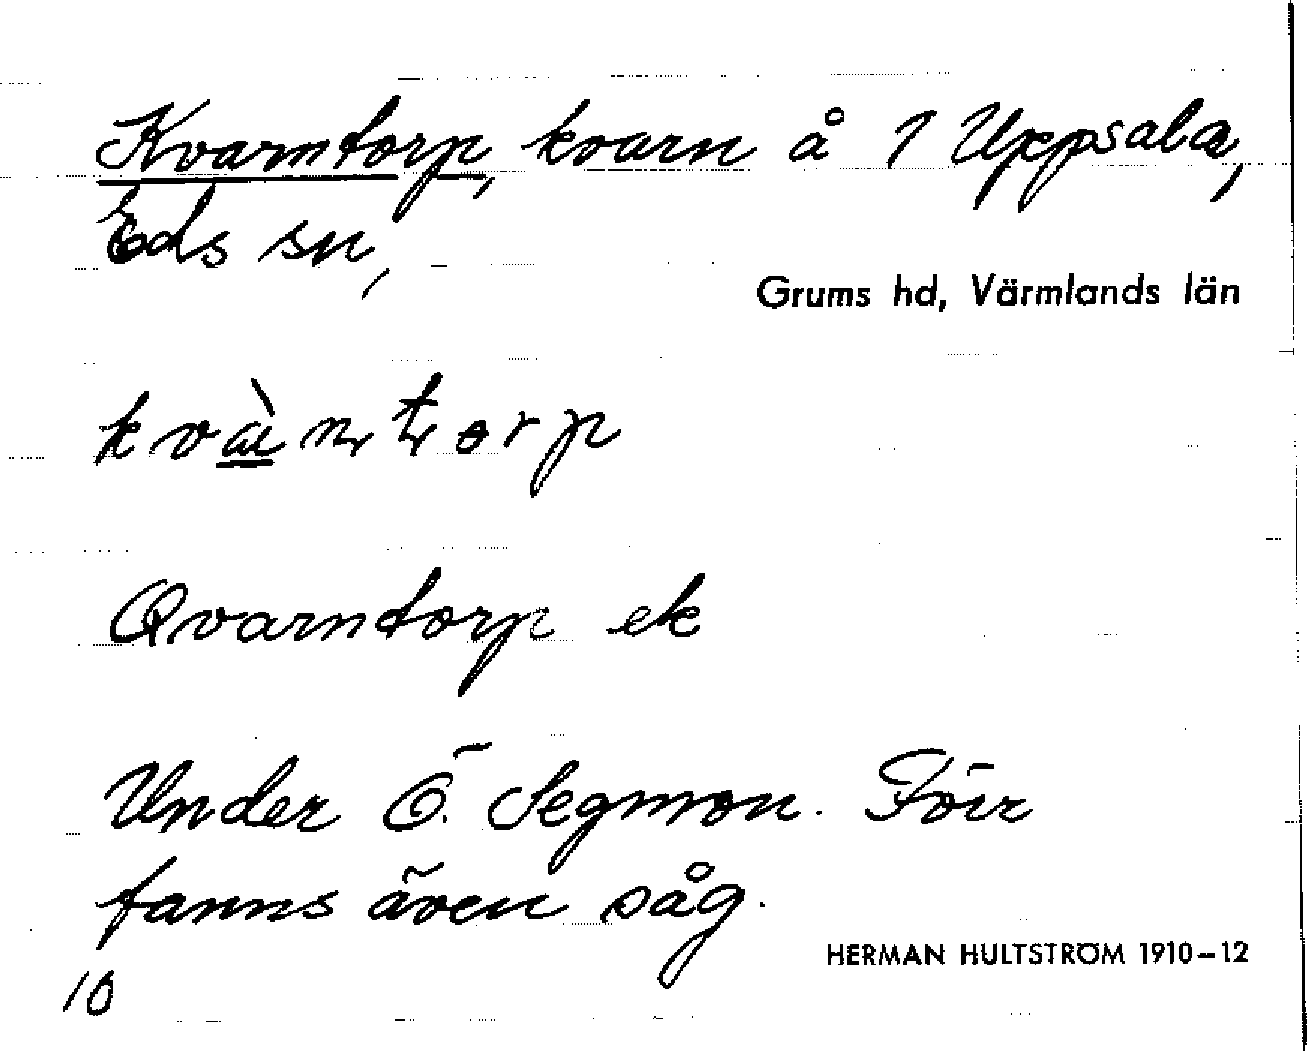 Kvarntorp, kvarn å 1 Uppsala,
Eds sn,
Grums hd, Värmlands län
kvàntorp
Qvarntorp ek
Under Ö. Segmon. Förr
fanns även såg.
HERMAN HULTSTRÖM 1910–12
10